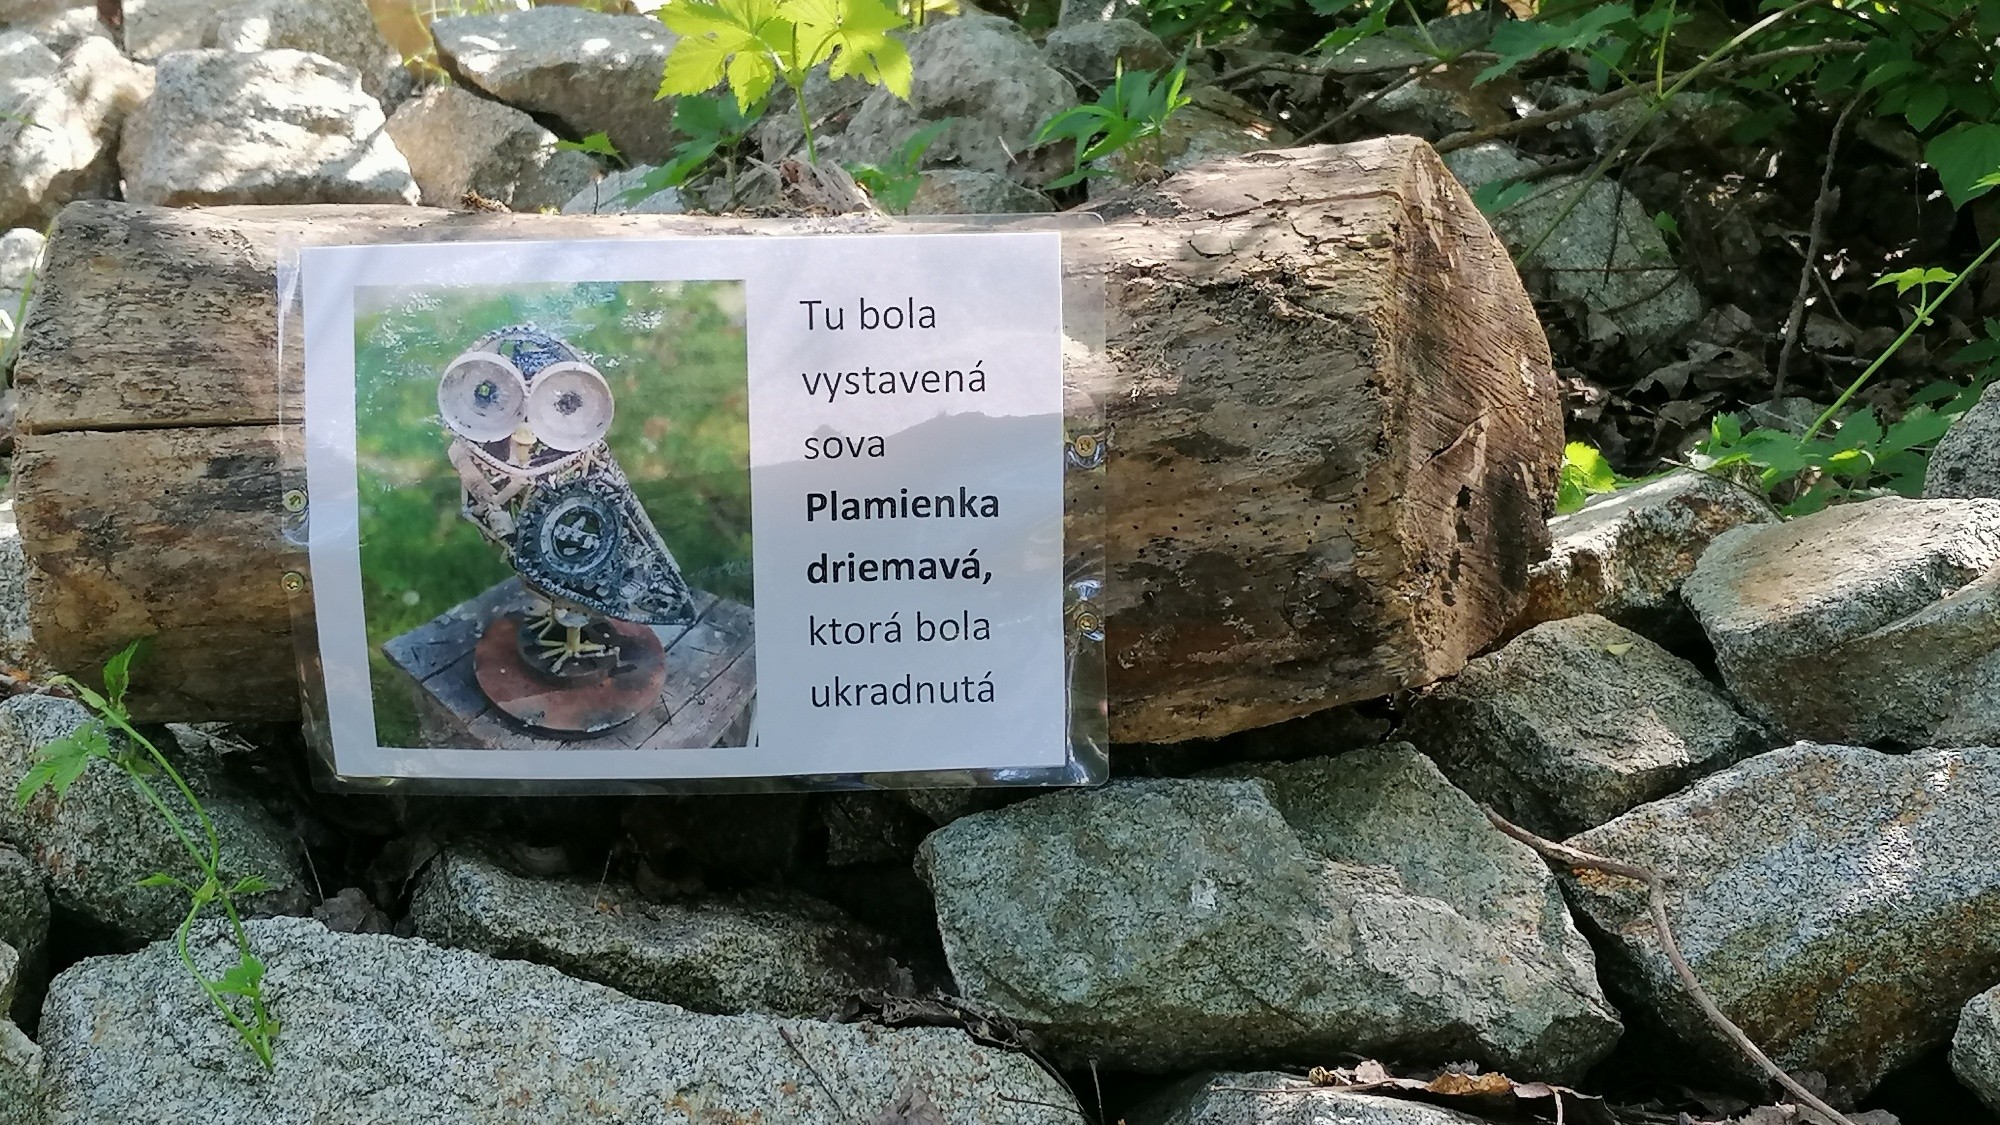 Tu bola
vystavená
sova
Plamienka
driemavá,
ktorá bola
ukradnutá